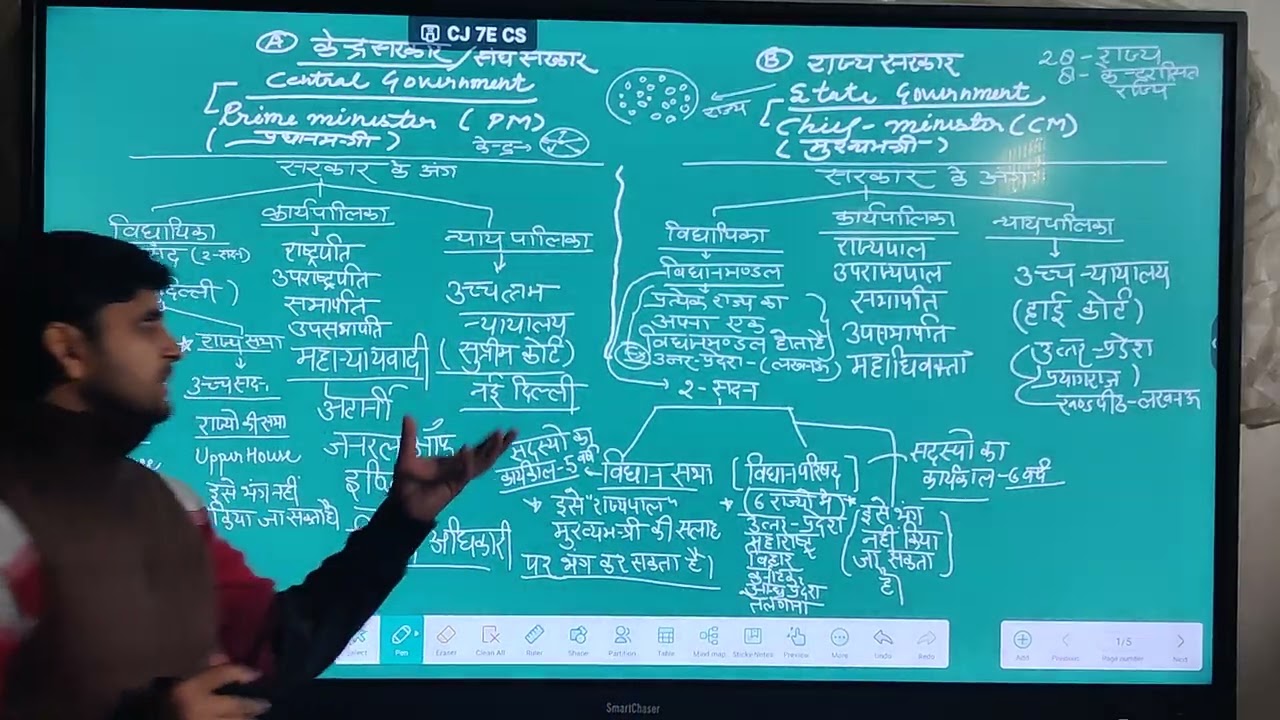 CJ 7E CS
Ⓐ केन्द्र सरकार / संघ सरकार
Central Government
Prime minister (PM)
(प्रधानमन्त्री)
केन्द्र →
Ⓑ राज्य सरकार
State Government
Chief-minister (CM)
(मुख्यमन्त्री)
राज्य
28 - राज्य
8 -
राज्य
सरकार के अंग
विधायिका
(2-सदन)
दिल्ली)
राज्य सभा
उच्चसदन
राज्यो की सभा
Upper House
इसे भंग नहीं
किया जा सकता है
कार्यपालिका
राष्ट्रपति
उपराष्ट्रपति
सभापति
उपसभापति
महान्यायवादी
अटार्नी
जनरल ऑफ
अधिकारी
न्यायपालिका
उच्चतम
न्यायालय
(सुप्रीम कोर्ट)
नई दिल्ली
सरकार के अंग
विधायिका
विधानमण्डल
प्रत्येक राज्य का
अपना एक
विधानमण्डल होता है
उत्तर-प्रदेश-(लखनऊ)
2-सदन
सदस्यो का
कार्यकाल-5 वर्ष
विधान सभा
इसे "राज्यपाल"
मुख्यमन्त्री की सलाह
पर भंग कर सकता है।
[विधान परिषद]
(6 राज्यो मे)
उत्तर-प्रदेश
महाराष्ट्र
बिहार
कर्नाटक
आन्ध्र प्रदेश
तेलंगाना
सदस्यो का
कार्यकाल-6 वर्ष
इसे भंग
नहीं किया
जा सकता
है
कार्यपालिका
राज्यपाल
उपराज्यपाल
सभापति
उपसभापति
महाधिवक्ता
न्यायपालिका
उच्च न्यायालय
(हाई कोर्ट)
उत्तर-प्रदेश
प्रयागराज)
खण्डपीठ-लखनऊ
Select
Pen
Eraser
Clean All
Ruler
Shape
Partition
Table
Mind map
Sticky Notes
Preview
More
Undo
Redo
Add
Previous
1/5
Page number
Next
SmartChaser